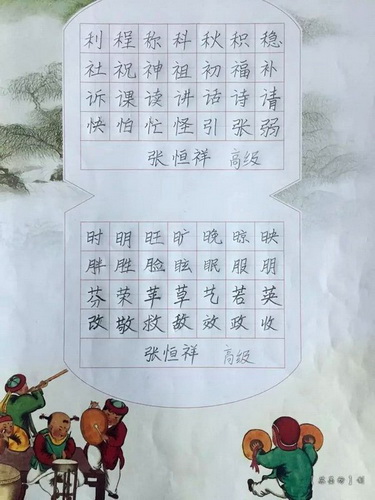 利程称科秋积稳
社祝神祖初福补
诉课读讲话诗请
快怕忙怪引张弱
张恒祥 高级
时明旺旷晚晾映
胖胜脸眩眠服朋
芬荣苹草艺若英
改敬救敌效政收
张恒祥 高级